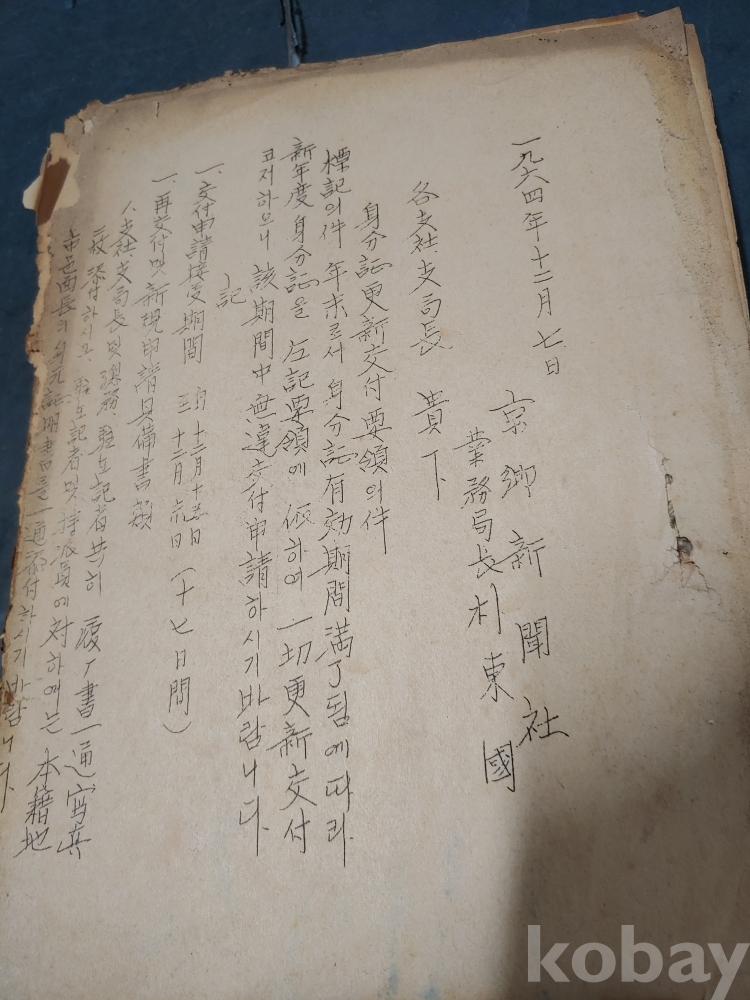 一九六四年 十二月 七日
京鄕新聞社
業務局長 朴東國
各支社.支局長 貴下
身分証更新交付要領의件
標記의件 年末로서 身分証有効期間満了됨에따라
新年度身分証을 左記要領에 依하여 一切更新交付
코저하오니 該期間中無違交付申請하시기바랍니다.
記
一. 交付申請接受期間 自 十二月十五日
至 十二月 日 (十七日間)
一. 再交付 및 新規申請具備書類
支社.支局長 및 總務 駐在記者共히 履歷書一通 寫真
枚 添付하시고 駐在記者 및 特派員에 対하여는 本籍地
市邑面長의 身元証明書를 一通添付하시기바랍니다.
kobay